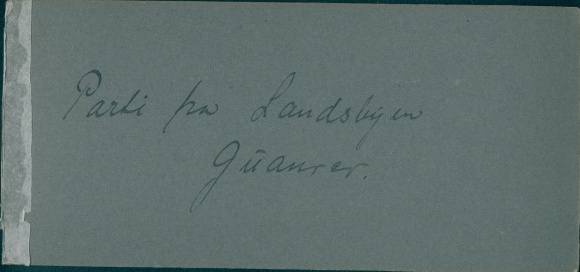 Parti fra Landsbyen
Güanrer.